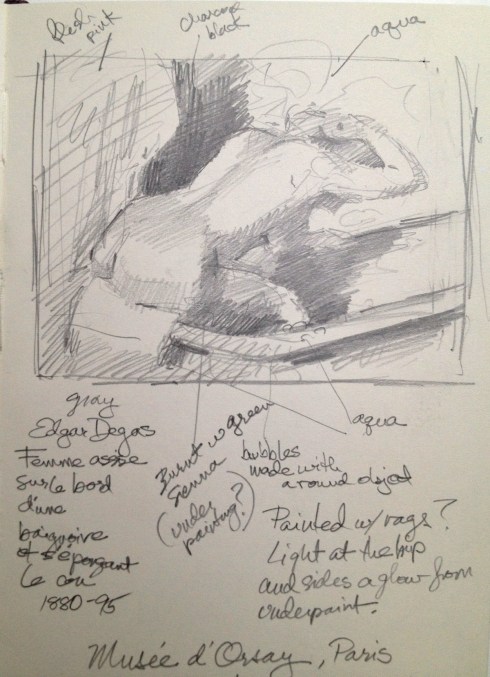 flesh pink
charcoal black
aqua
gray
aqua
Edgar Degas
Femme assise
sur le bord
d'une
baignoire
et s'épongeant
le cou
1880-95
Burnt w green
Sienna
(under
painting?)
bubbles
made with
a round object
Painted w/ rags?
Light at the hip
and sides a glow from
underpaint.
Musée d'Orsay, Paris